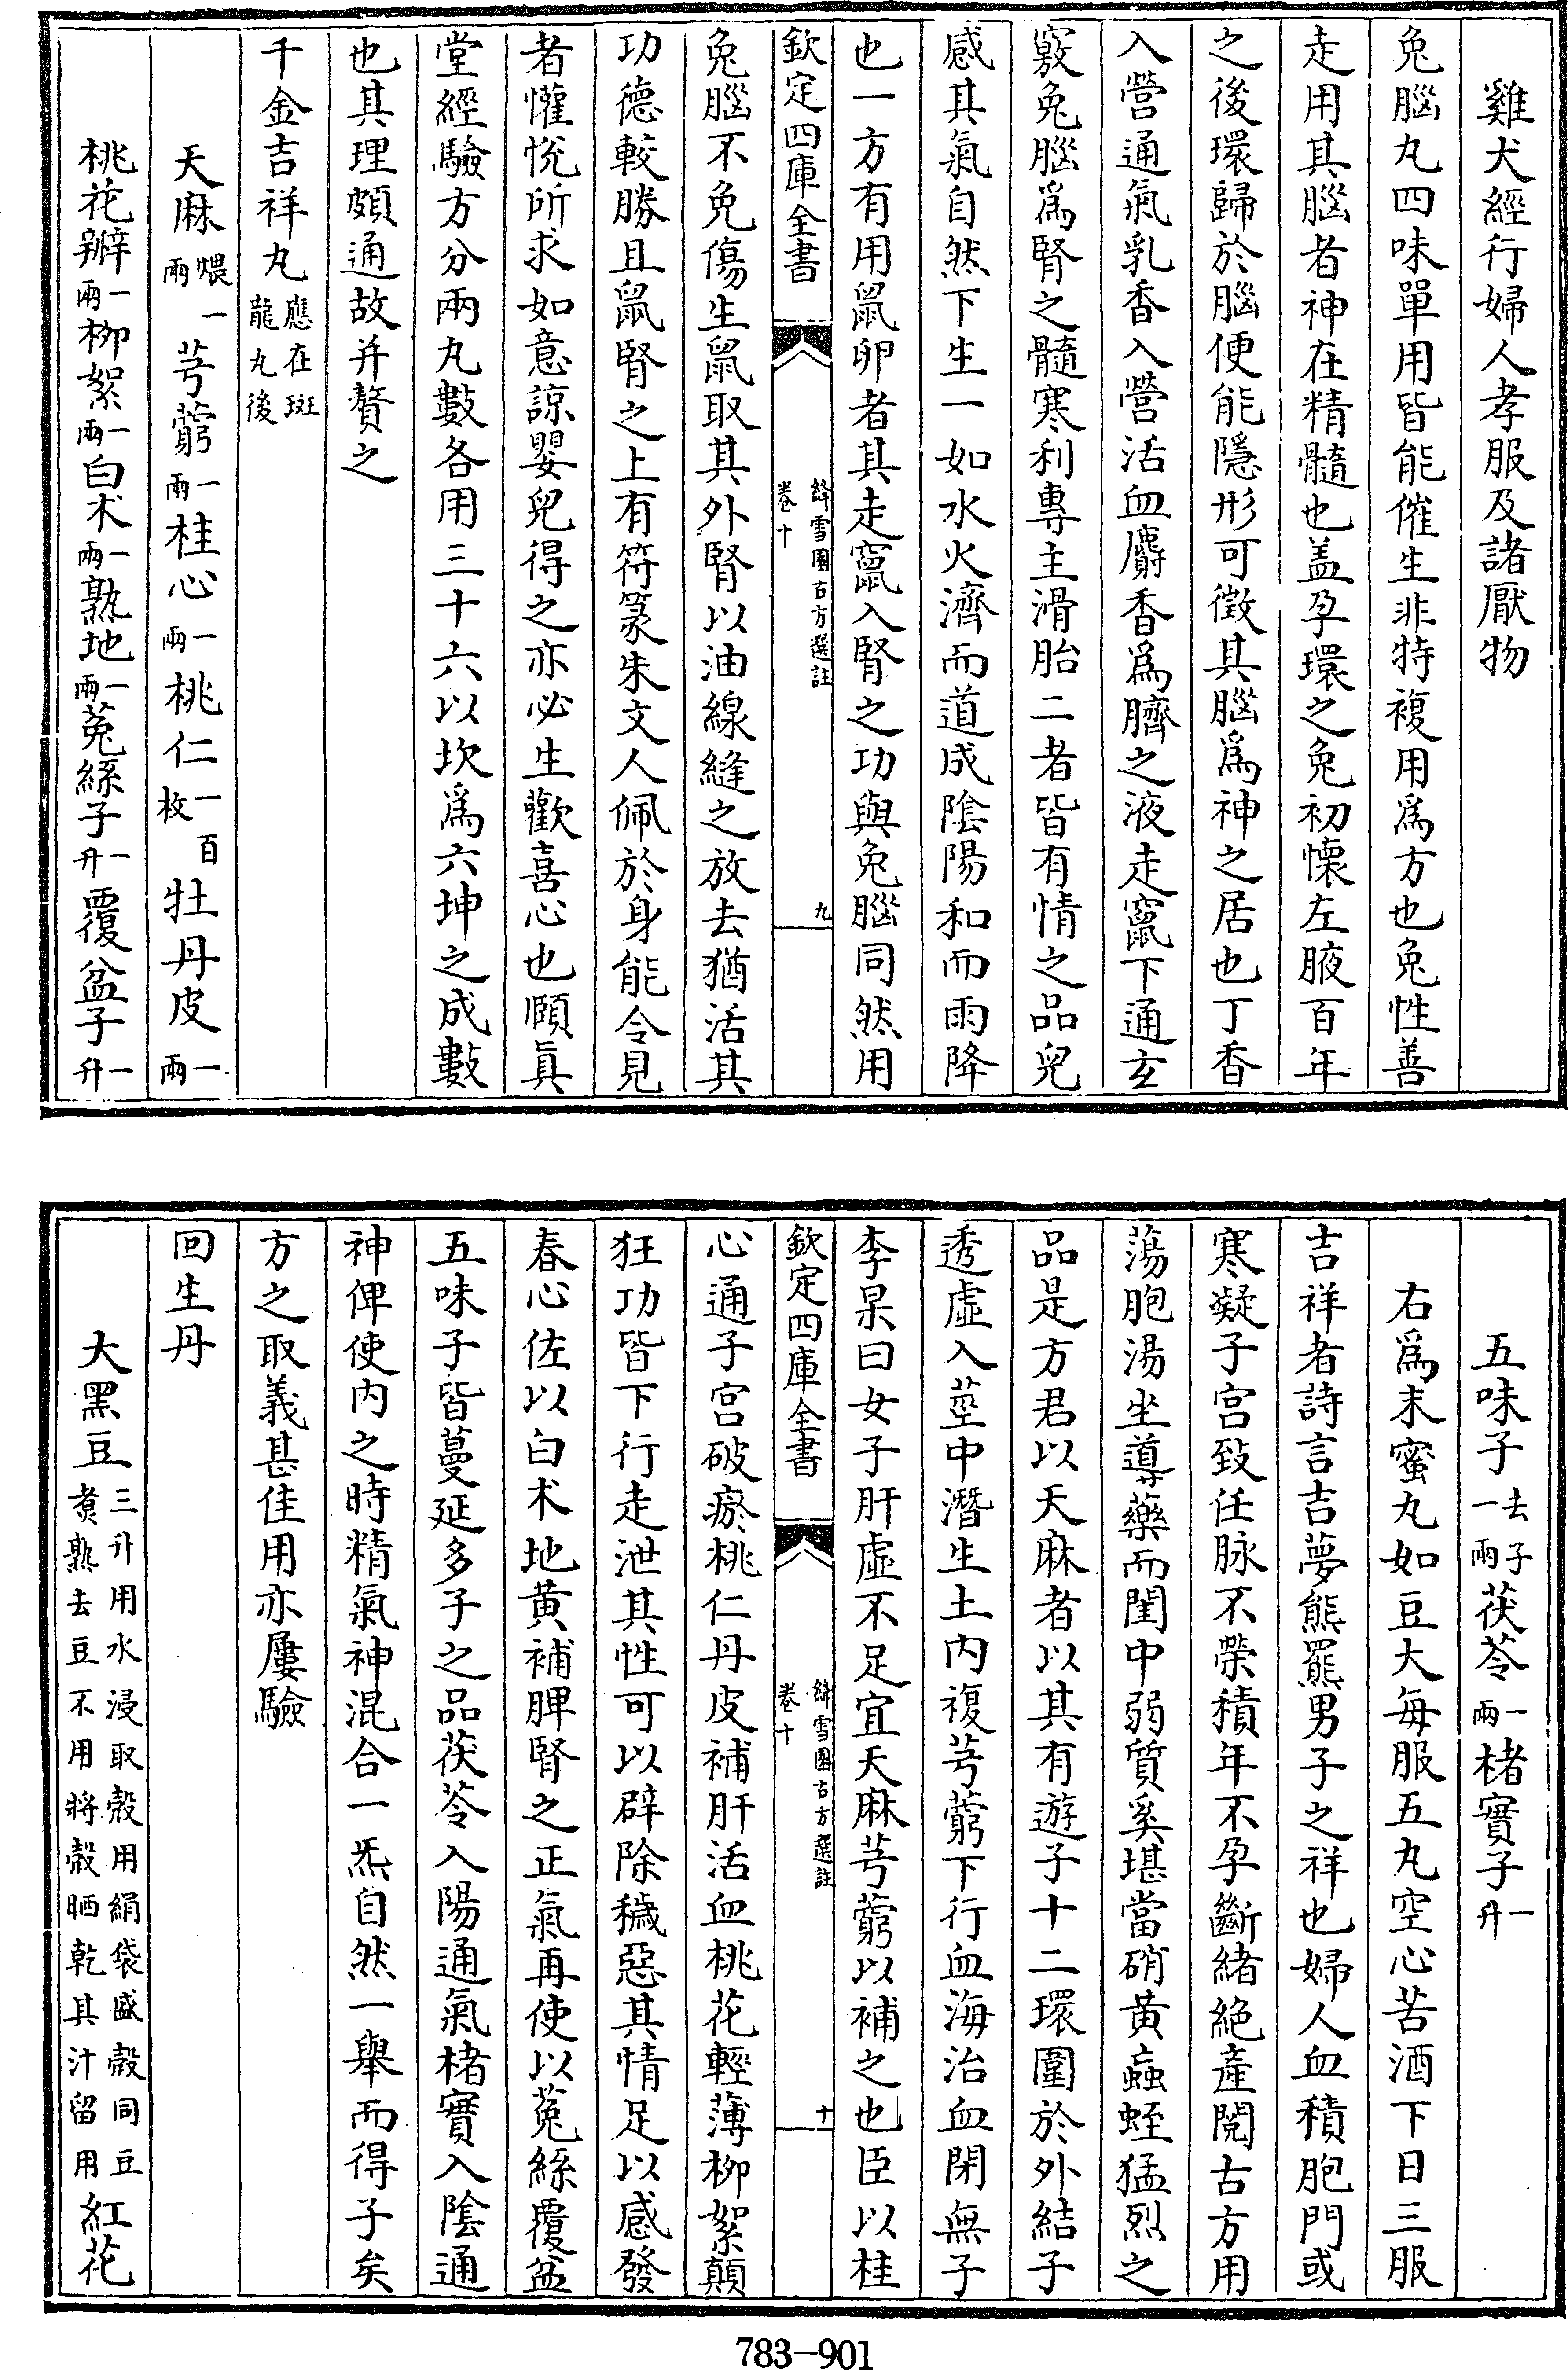 雞犬經行婦人孝服及諸厭物
兔腦丸四味單用皆能催生非特複用爲方也兔性善
走用其腦者神在精髓也盖孕環之兔初懷左腋百年
之後環歸於腦便能隱形可徵其腦爲神之居也丁香
入營通氣乳香入營活血麝香爲臍之液走竄下通玄
竅兔腦爲腎之髓寒利專主滑胎二者皆有情之品兒
感其氣自然下生一如水火濟而道成陰陽和而雨降
也一方有用鼠卵者其走竄入腎之功與兔腦同然用
欽定四庫全書
絳雪園古方選註
卷十
九
兔腦不免傷生鼠取其外腎以油線縫之放去猶活其
功德較勝且鼠腎之上有符篆朱文人佩於身能令見
者懽悅所求如意諒嬰兒得之亦必生歡喜心也願眞
堂經驗方分兩丸數各用三十六以坎爲六坤之成數
也其理頗通故并贅之
千金吉祥丸應在斑龍丸後
天麻煨一兩芎藭一兩桂心一兩桃仁一百枚牡丹皮一兩
桃花瓣一兩柳絮一兩白术一兩熟地一兩菟絲子一升覆盆子一升
五味子去子一兩茯苓一兩楮實子一升
右爲末蜜丸如豆大每服五丸空心苦酒下日三服
吉祥者詩言吉夢熊羆男子之祥也婦人血積胞門或
寒凝子宮致任脉不榮積年不孕斷緒絕產閱古方用
蕩胞湯坐導藥而閨中弱質奚堪當硝黃蝱蛭猛烈之
品是方君以天麻者以其有遊子十二環圍於外結子
透虛入莖中潛生土内複芎藭下行血海治血閉無子
李杲曰女子肝虛不足宜天麻芎藭以補之也臣以桂
欽定四庫全書
絳雪園古方選註
卷十
十
心通子宮破瘀桃仁丹皮補肝活血桃花輕薄柳絮顛
狂功皆下行走泄其性可以辟除穢惡其情足以感發
春心佐以白术地黃補脾腎之正氣再使以菟絲覆盆
五味子皆蔓延多子之品茯苓入陽通氣楮實入陰通
神俾使内之時精氣神混合一炁自然一舉而得子矣
方之取義甚佳用亦屢驗
回生丹
大黑豆三升用水浸取殼用絹袋盛殼同豆煑熟去豆不用將殼晒乾其汁留用紅花
783-901